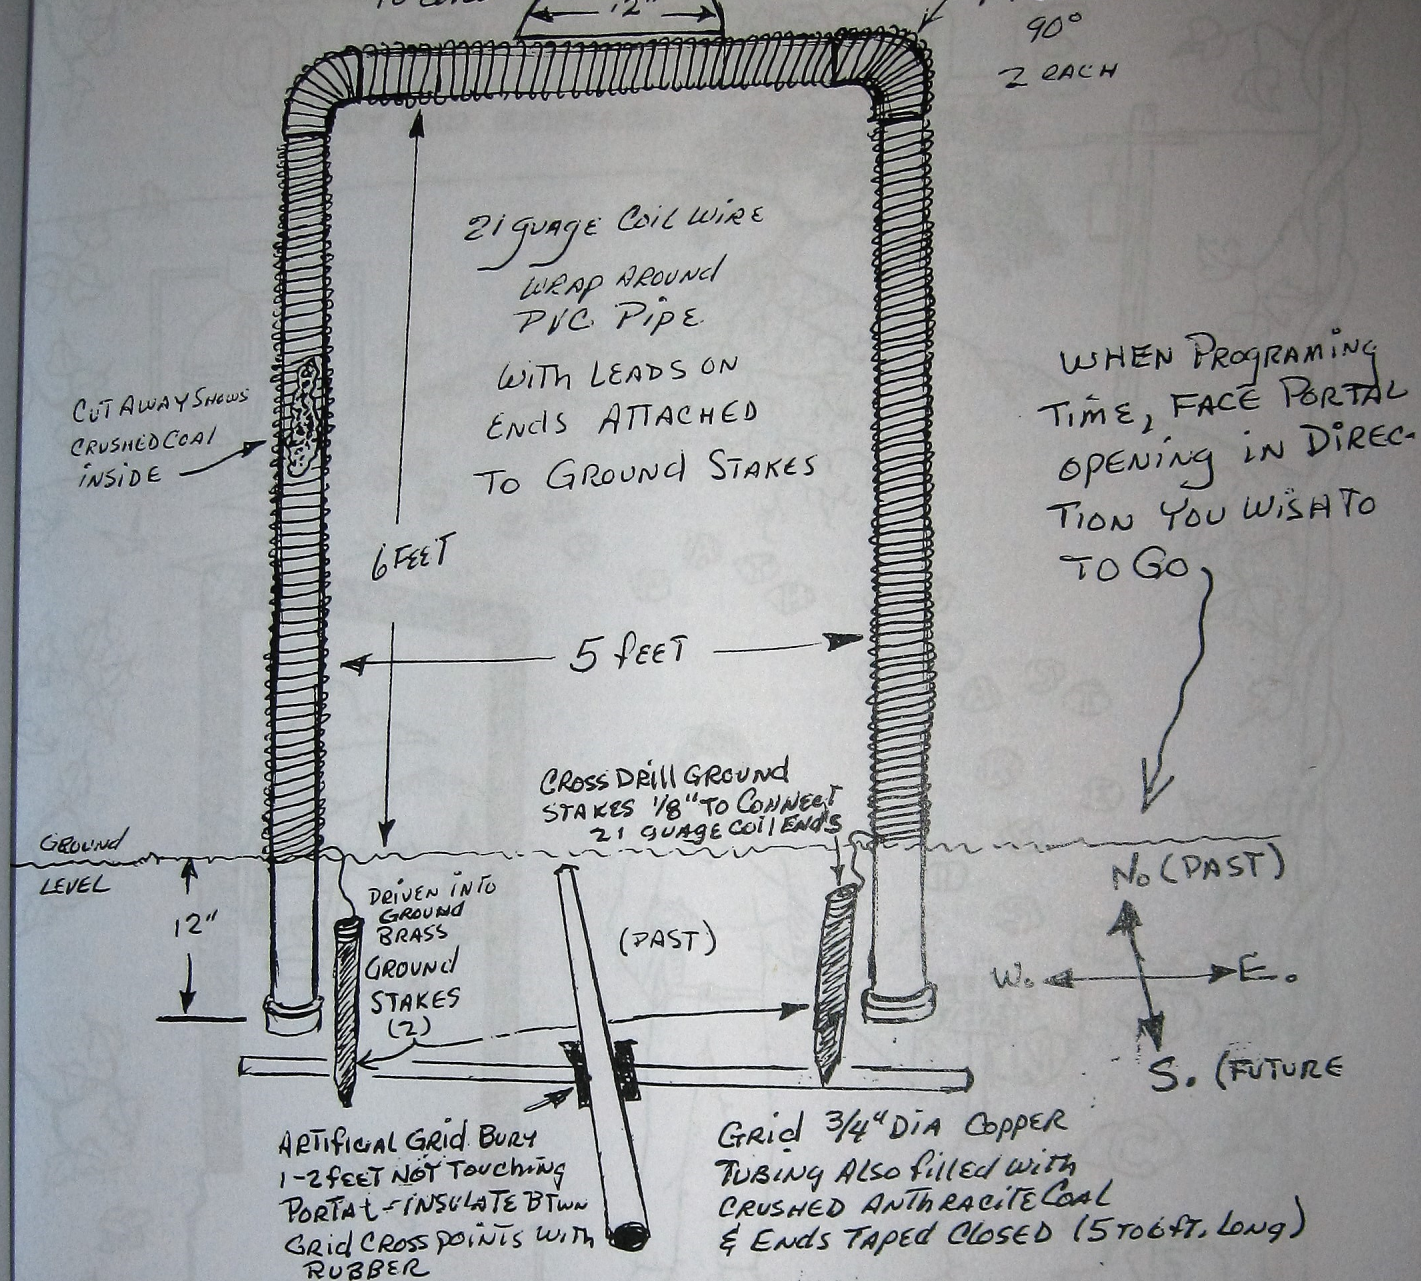 12"
90°
2 EACH
21 guage Coil Wire
WRAP AROUND
PVC PiPE
WiTH LEADS ON
ENDS ATTACHED
TO GROUND STAKES
CUT AWAY SHOWS
CRUSHED COAl
iNSiDE
6 FEET
5 FEET
WHEN PROGRAMiNG
TiME, FACE PORTAL
OPENiNG iN DiREC-
TiON YOU WiSH TO
TO GO
CROSS DRill GROUND
STAKES 1/8" TO CONNECT
21 guage COil ENDS
GROUND
LEVEL
12"
DRiVEN iNTO
GROUND
BRASS
GROUND
STAKES
(2)
(PAST)
No (PAST)
W. E.
S. (FUTURE
ARTiFiCiAL GRid BURY
1-2 FEET NOT TOUCHiNg
PORTAL - iNSULATE BTWN
GRid CROSS POiNTS WiTH
RUBBER
GRid 3/4" DiA COPPER
TUBiNG ALSO FillED WiTH
CRUSHED ANTHRACiTE COAL
& ENDS TAPED CLOSED (5 TO 6 FT. LONg)